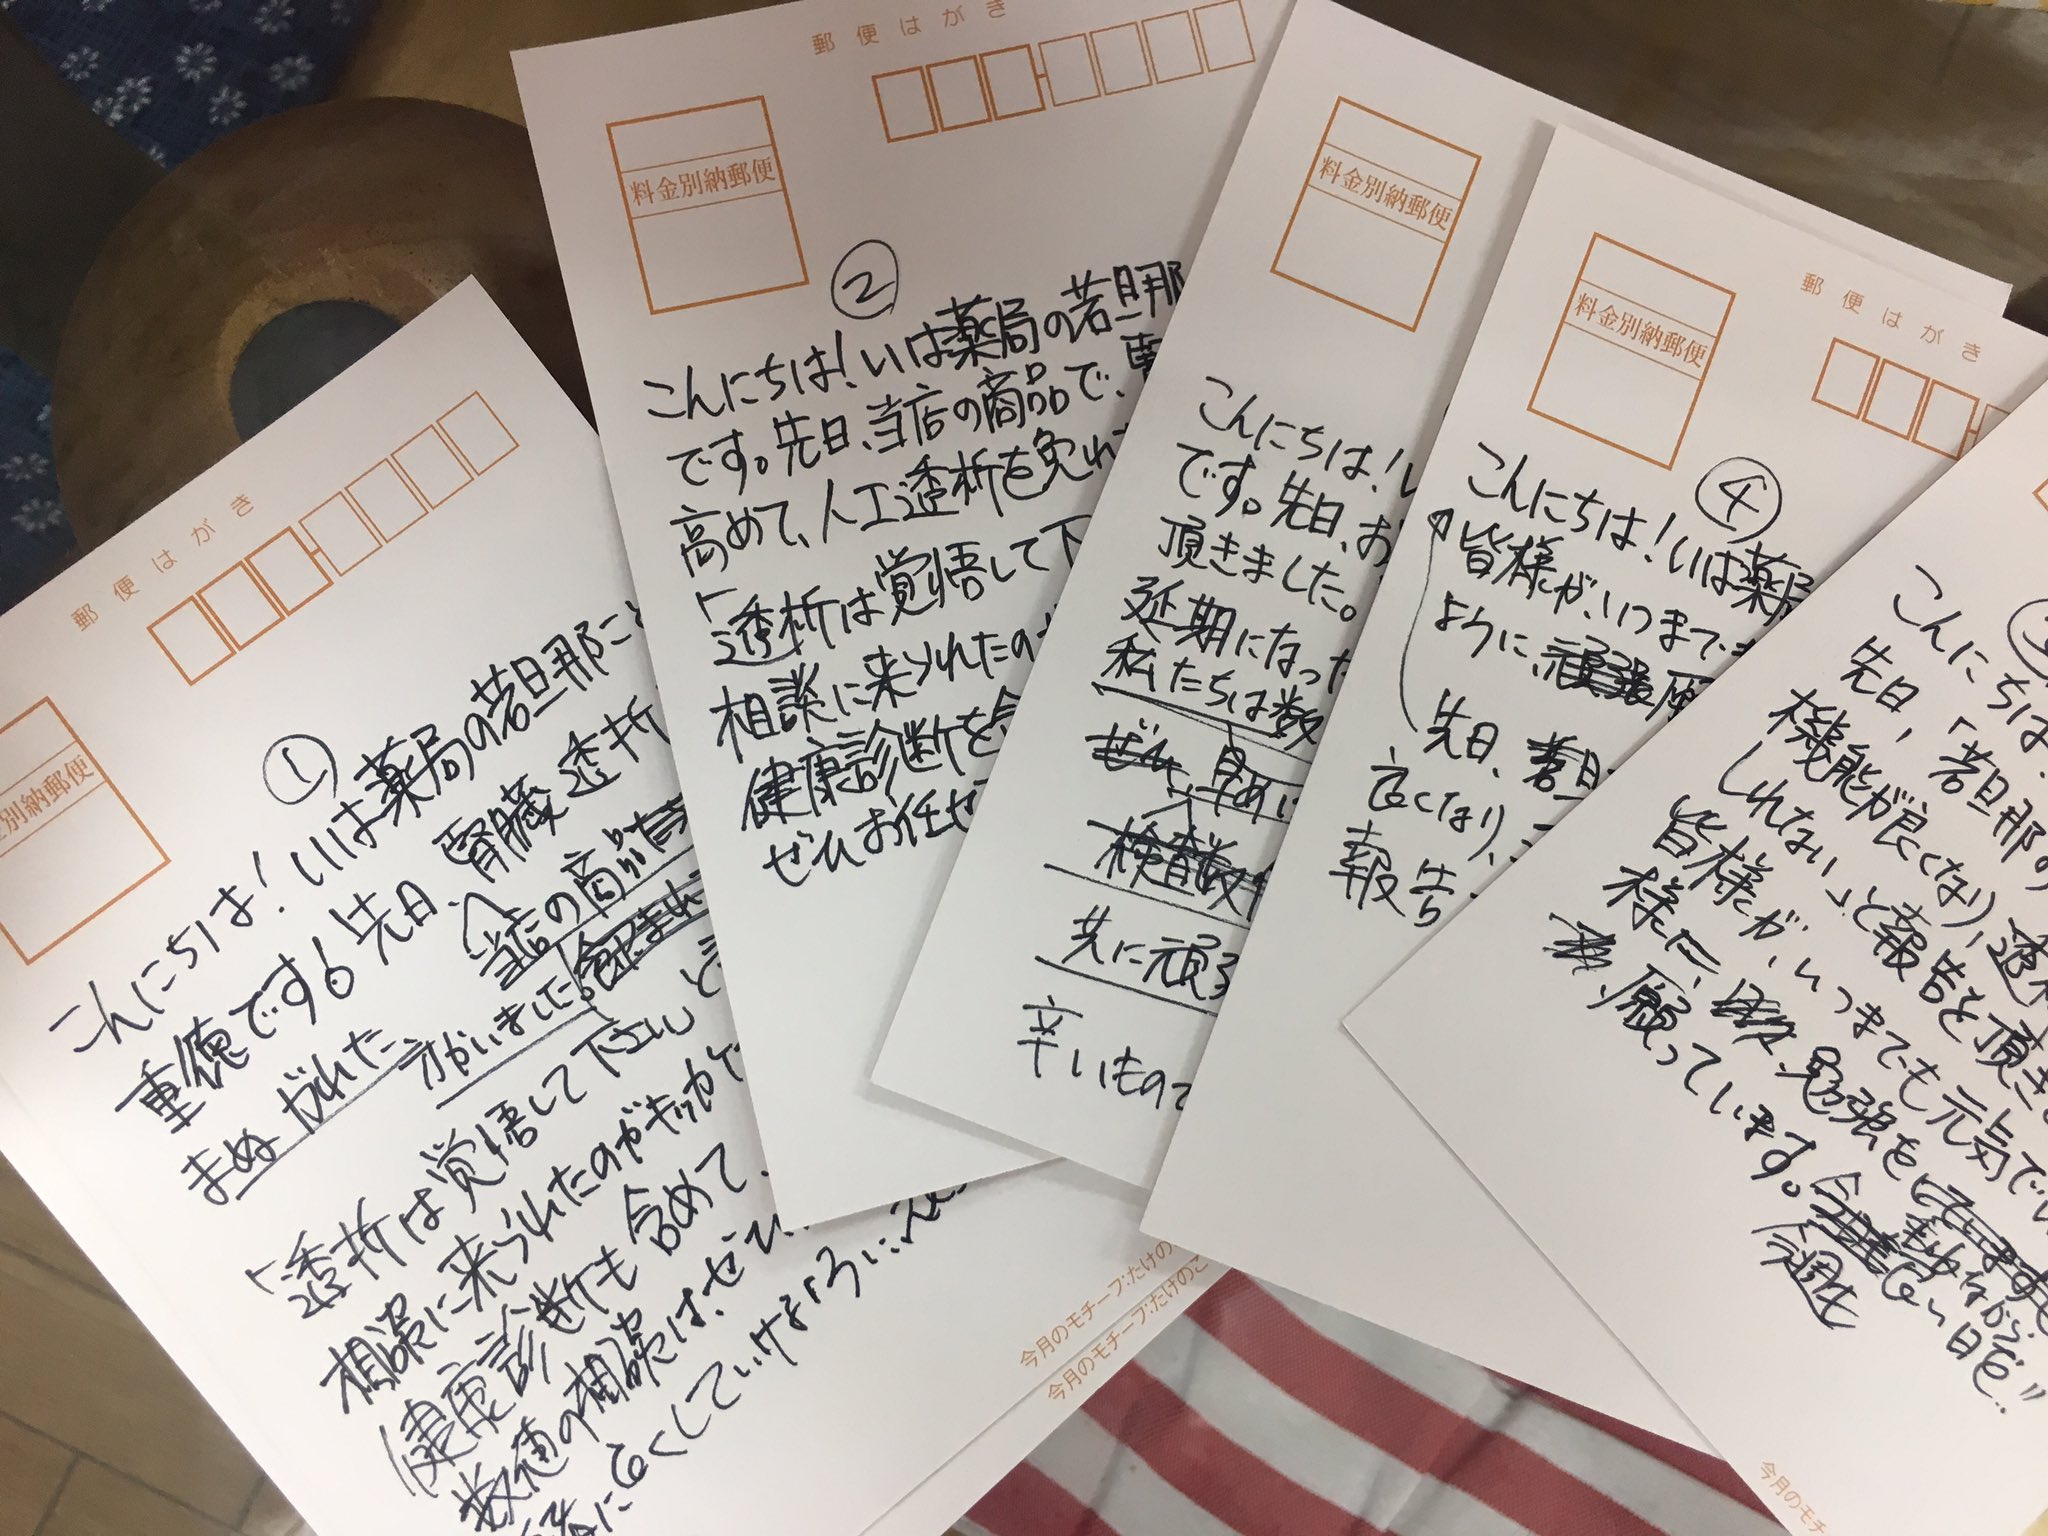 郵便はがき
料金別納郵便
①
こんにちは！いは薬局の若旦那こと
重徳です！先日、腎臓透析
まぬがれた
当店の商品
うかがいました。
「透析は覚悟して下さい」と
相談に来られたのがキッカケで
健康診断も含めて、
数値の相談は、ぜひ
良くしていけるように
今月のモチーフ:たけの
今月のモチーフ:たけのこ
郵便はがき
料金別納郵便
②
こんにちは！いは薬局の若旦那
です。先日、当店の商品で、
高めて、人工透析を免れ
「透析は覚悟して下
相談に来られたの
健康診断を含
ぜひお任せ
料金別納郵便
こんにちは！い
です。先日、お
頂きました。
延期になった
私たちは数
早めに
検査数
共に頑張
辛いもので
郵便はがき
料金別納郵便
④
こんにちは！いは薬局
皆様が、いつまでも
ように、頑張 願
先日、若旦
良くなり、
報告
こんにちは！
先日、「若旦那の
機能が良くなり、透析
しれない」と報告を頂き
皆様が、いつまでも元気で
様に、勉強を
願っています。
今週も良い日を…"
今月のモチ